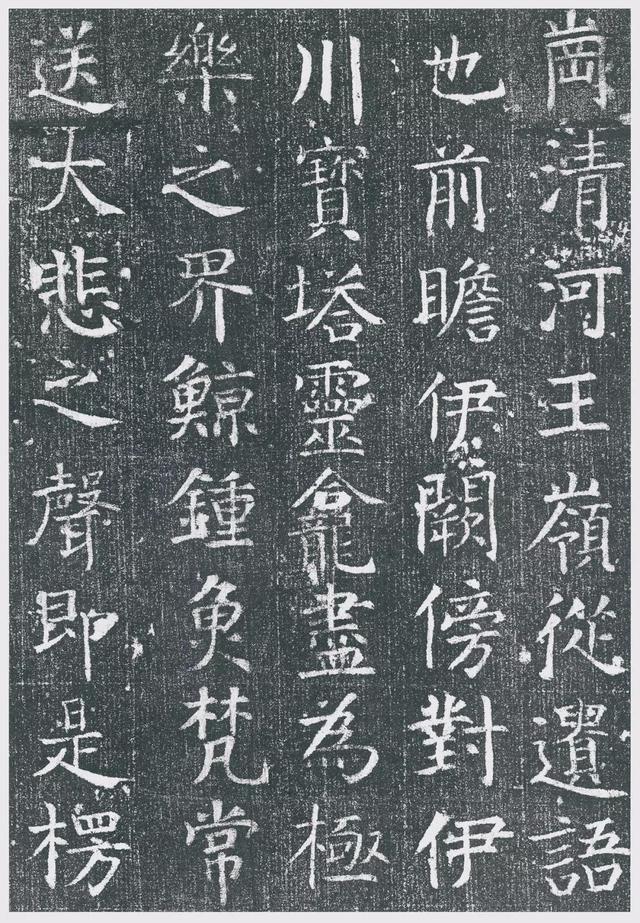 崗清河王嶺從遺語
也前瞻伊闕傍對伊
川寶塔靈龕盡為極
樂之界鯨鍾魚梵常
送大悲之聲即是楞